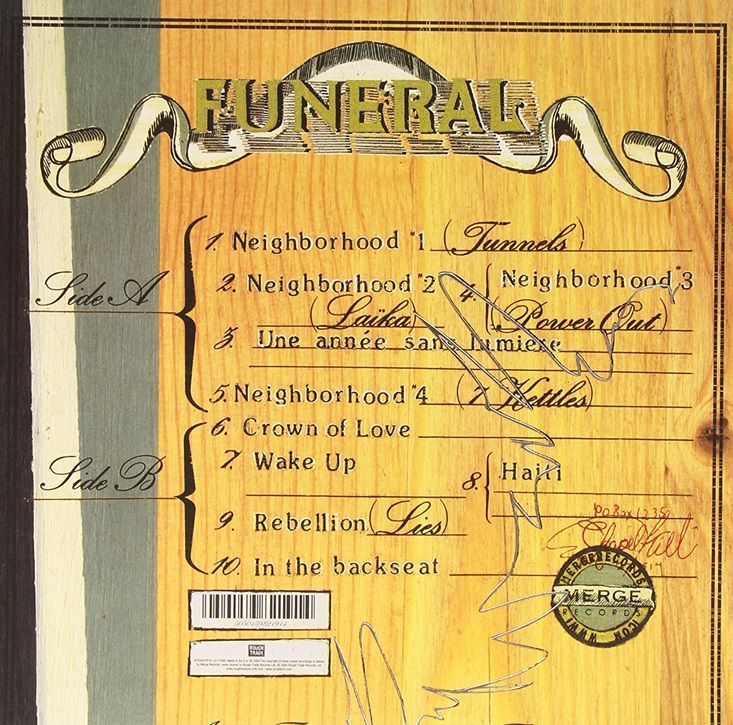 FUNERAL
Side A
1. Neighborhood #1 (Tunnels)
2. Neighborhood #2 (Laïka)
3. Une année sans lumiere
4. Neighborhood #3 (Power Out)
5. Neighborhood #4 (7 Kettles)
Side B
6. Crown of Love
7. Wake Up
8. Haiti
9. Rebellion (Lies)
10. In the backseat
PO Box 1235
Chapel Hill
MERGERECORDS
MERGE
RECORDS
5050159821914
ROUGH
TRADE